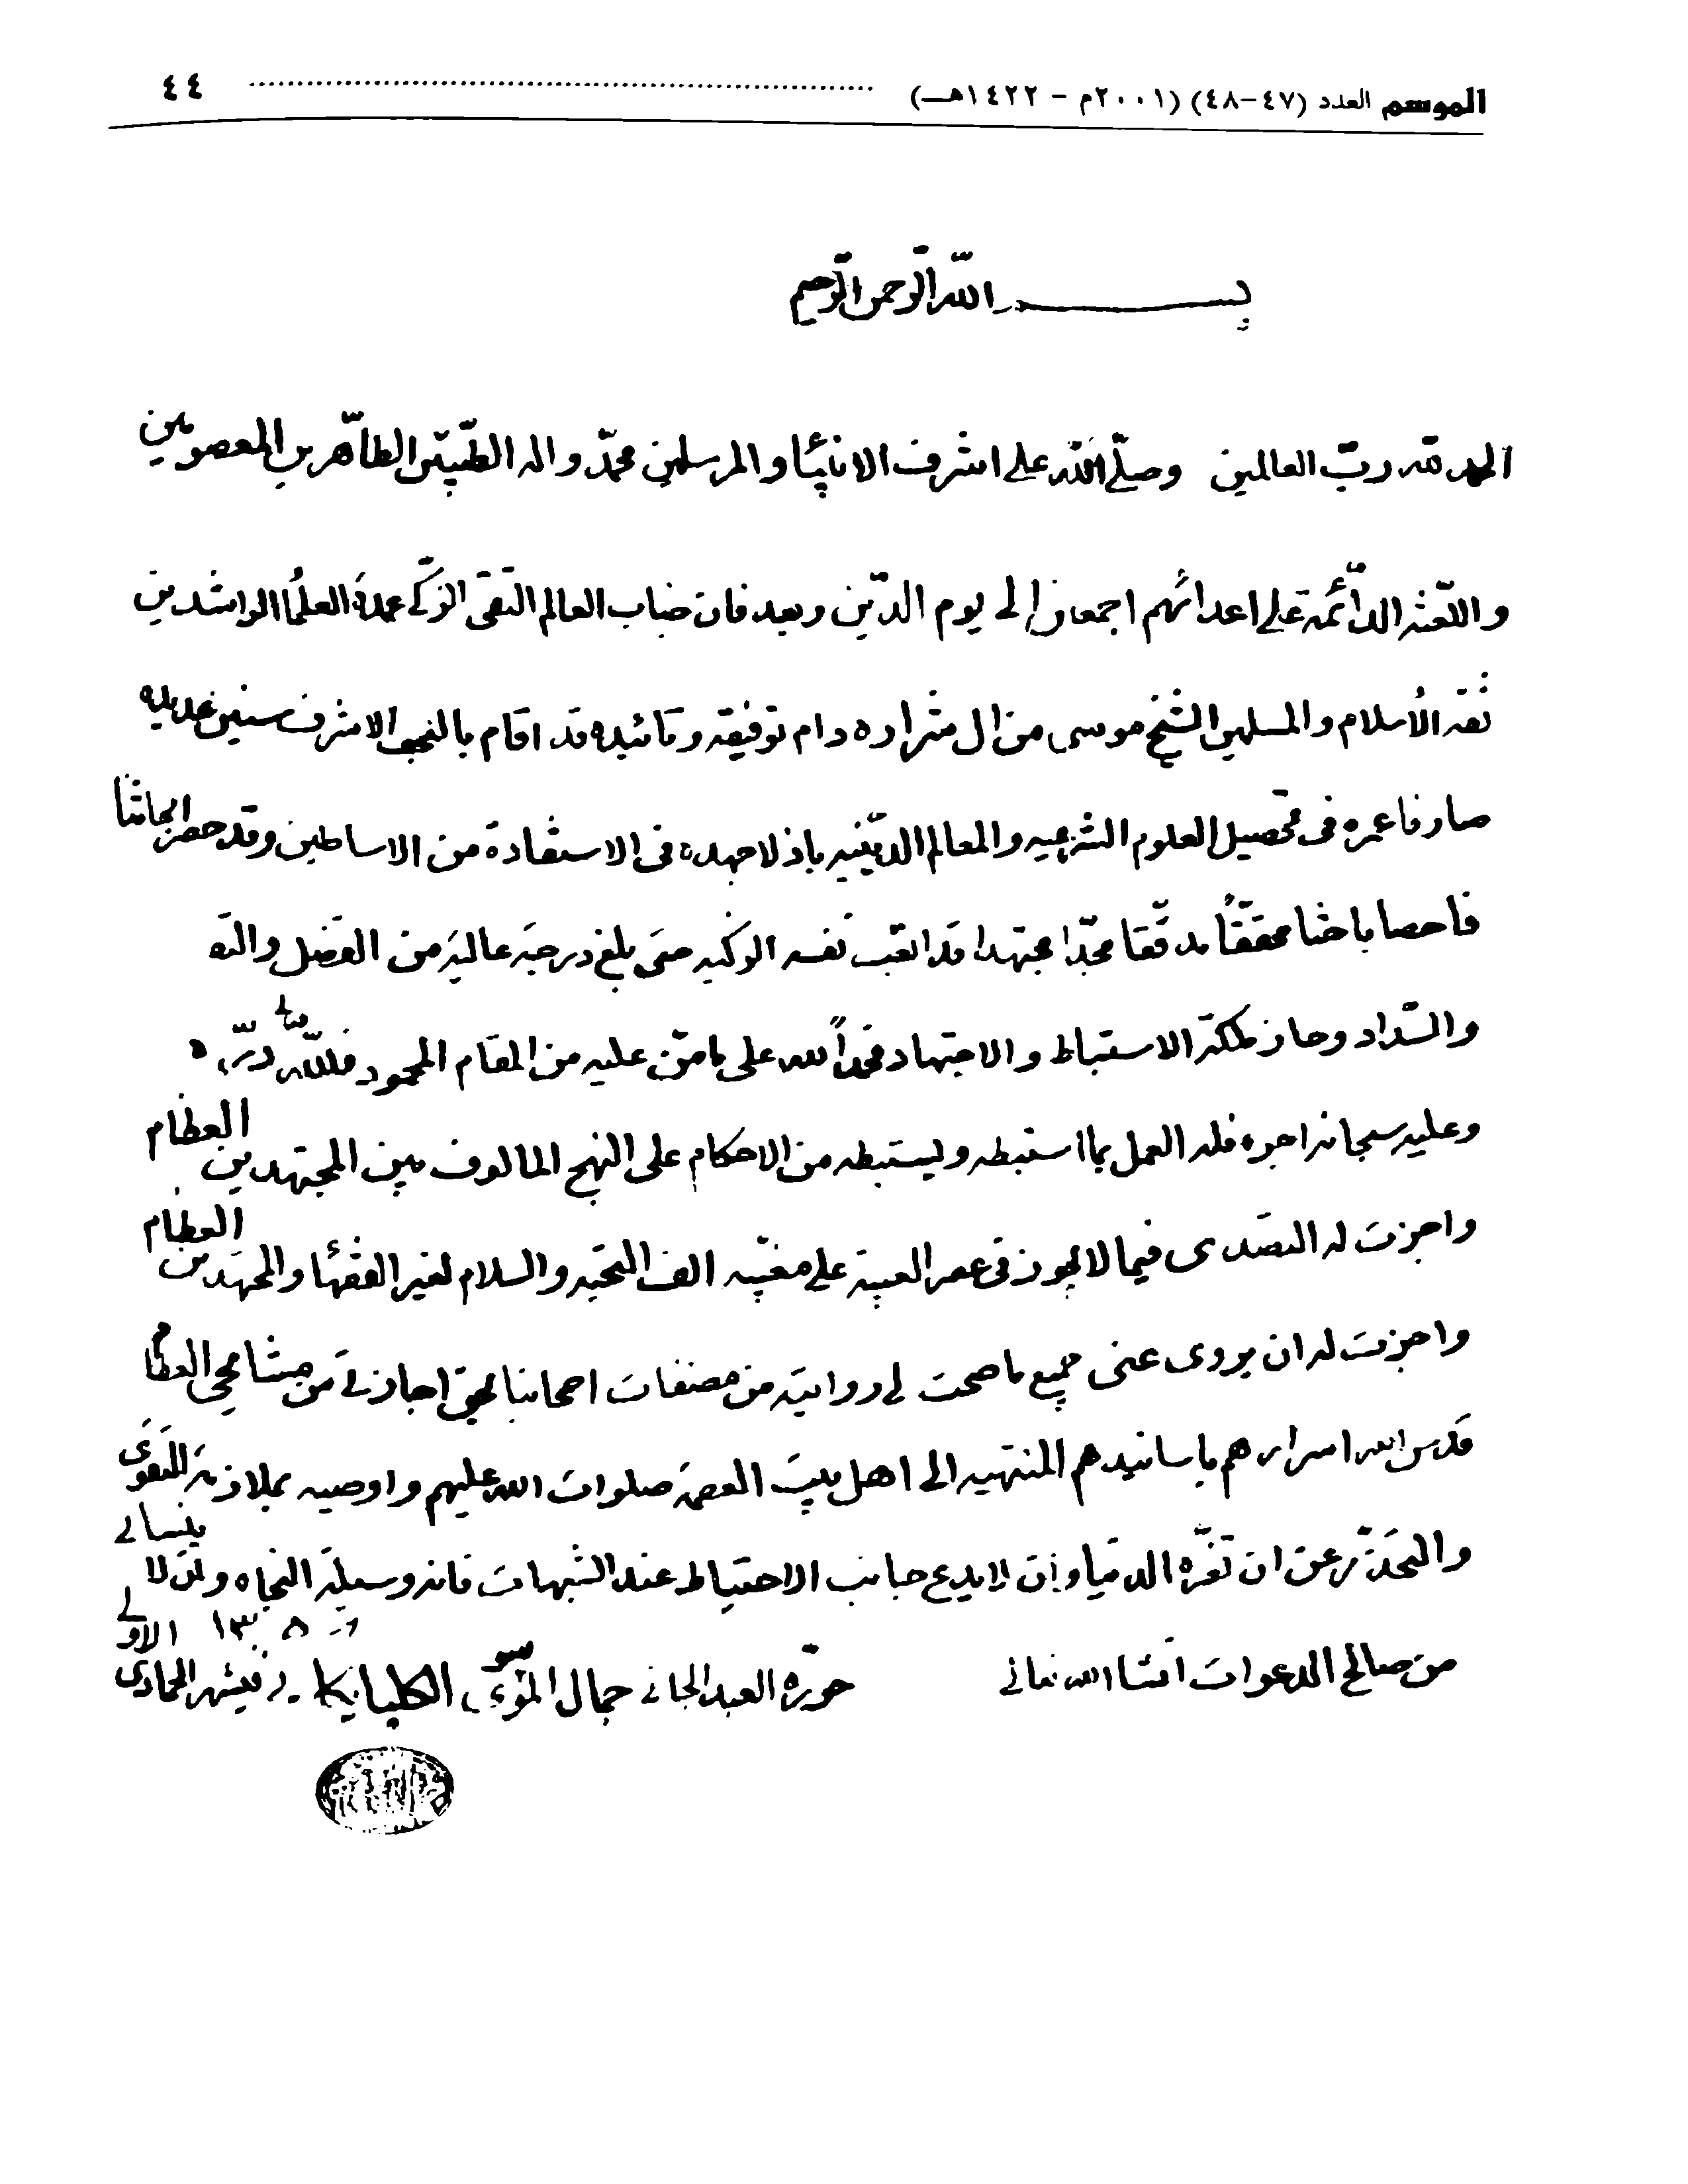 الموسم العدد (٤٧-٤٨) (٢٠٠١م - ١٤٢٢هـ) ٤٤
بسم الله الرحمن الرحيم
الحمد لله ربّ العالمين وصلّى الله على اشرف الانبياء والمرسلين محمّد واله الطّيبين الطّاهرين المعصومين
واللّعنة الدّائمة على اعدائهم اجمعين إلى يوم الدّين وبعد فان جناب العالم التقى الزكّى عمدة العلماء الراشدين
ثقة الاسلام والمسلمين الشيخ موسى من ال شراره دام توفيقه وتائيده قد اقام بالنجف الاشرف سنين عديده
صارفا عمره فى تحصيل العلوم الشرعيه والمعالم الدينيه باذلا جهده فى الاستفادة من الاساطين وقد حضر ابحاثنا
فاحصا باحثا محققاً مدقّقا مجدّا مجتهدا قد اتعب نفسه الزكيه حتى بلغ درجة عالية من الفضل والتقى
والسّداد وحاز ملكة الاستنباط والاجتهاد فحمداً لله على ما منّ عليه من المقام المحمود فللّه تعالى درّه
وعليه سبحانه اجره فله العمل بما استنبطه ويستنبطه من الاحكام على النهج المالوف بين المجتهدين العظام
واجزت له التصدى فيما لا يجوز فى عصر الغيبة على مغيّبه الف التحيه والسلام لغير الفقهاء والمجتهدين العظام
واجزت له ان يروى عنى جميع ما صحت لى روايته من مصنفات اصحابنا بحق اجازتى من مشايخى العظام
قدس الله اسرارهم باسانيدهم المنتهيه الى اهل بيت العصمة صلوات الله عليهم واوصيه بملازمة التقوى
والتحذّر عن ان تغرّه الدنيا وان لا يدع جانب الاحتياط عند الشبهات فانه وسيلة النجاه وان لا ينسانى
من صالح الدعوات انشاء الله تعالى حرّره العبد الجانى جمال الموسوى الكلپايكانى فى شهر الجمادى الاولى ١٣